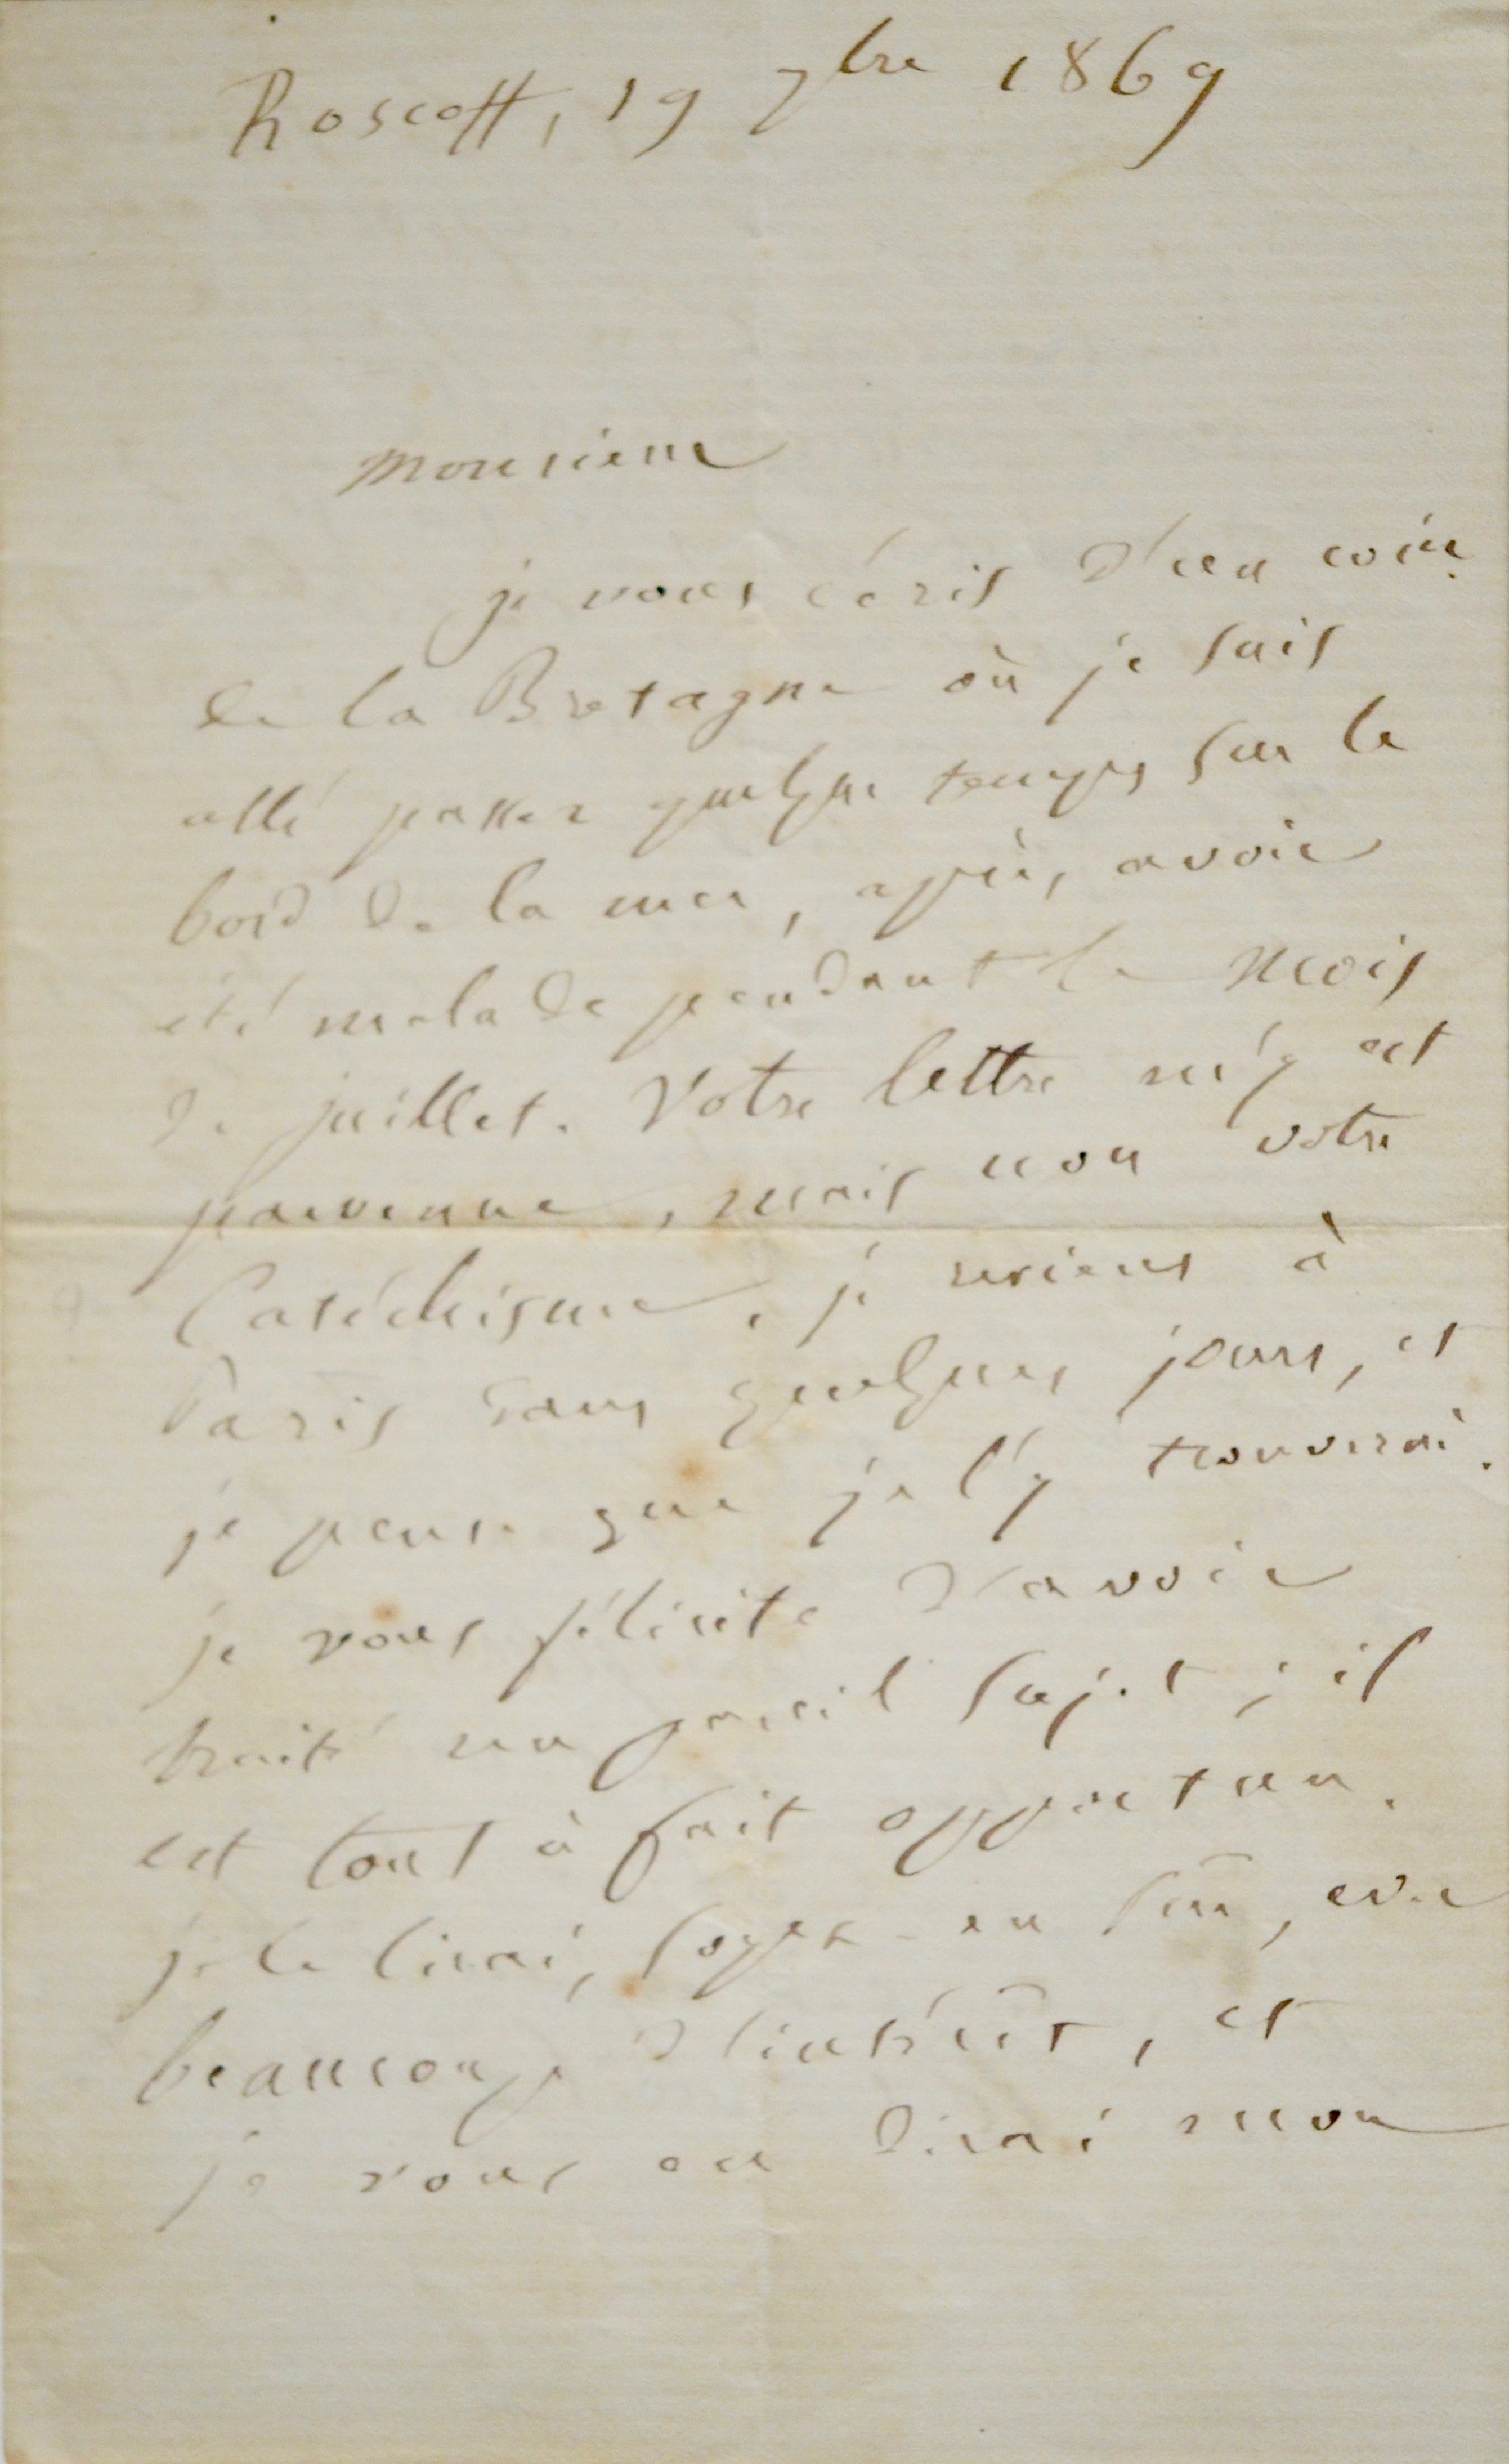 Roscoff, 19 7bre 1869
Monsieur
je vous écris d'un coin
de la Bretagne où je suis
allé passer quelque temps sur le
bord de la mer, après avoir
été malade pendant le mois
de juillet. Votre lettre m'y est
parvenue, mais non votre
Catéchisme. je reviens à
Paris dans quelques jours, et
je pense que je l'y trouverai.
je vous félicite d'avoir
traité un pareil sujet ; il
est tout à fait opportun.
je le lirai, soyez-en sûr, avec
beaucoup d'intérêt, et
je vous en dirai mon